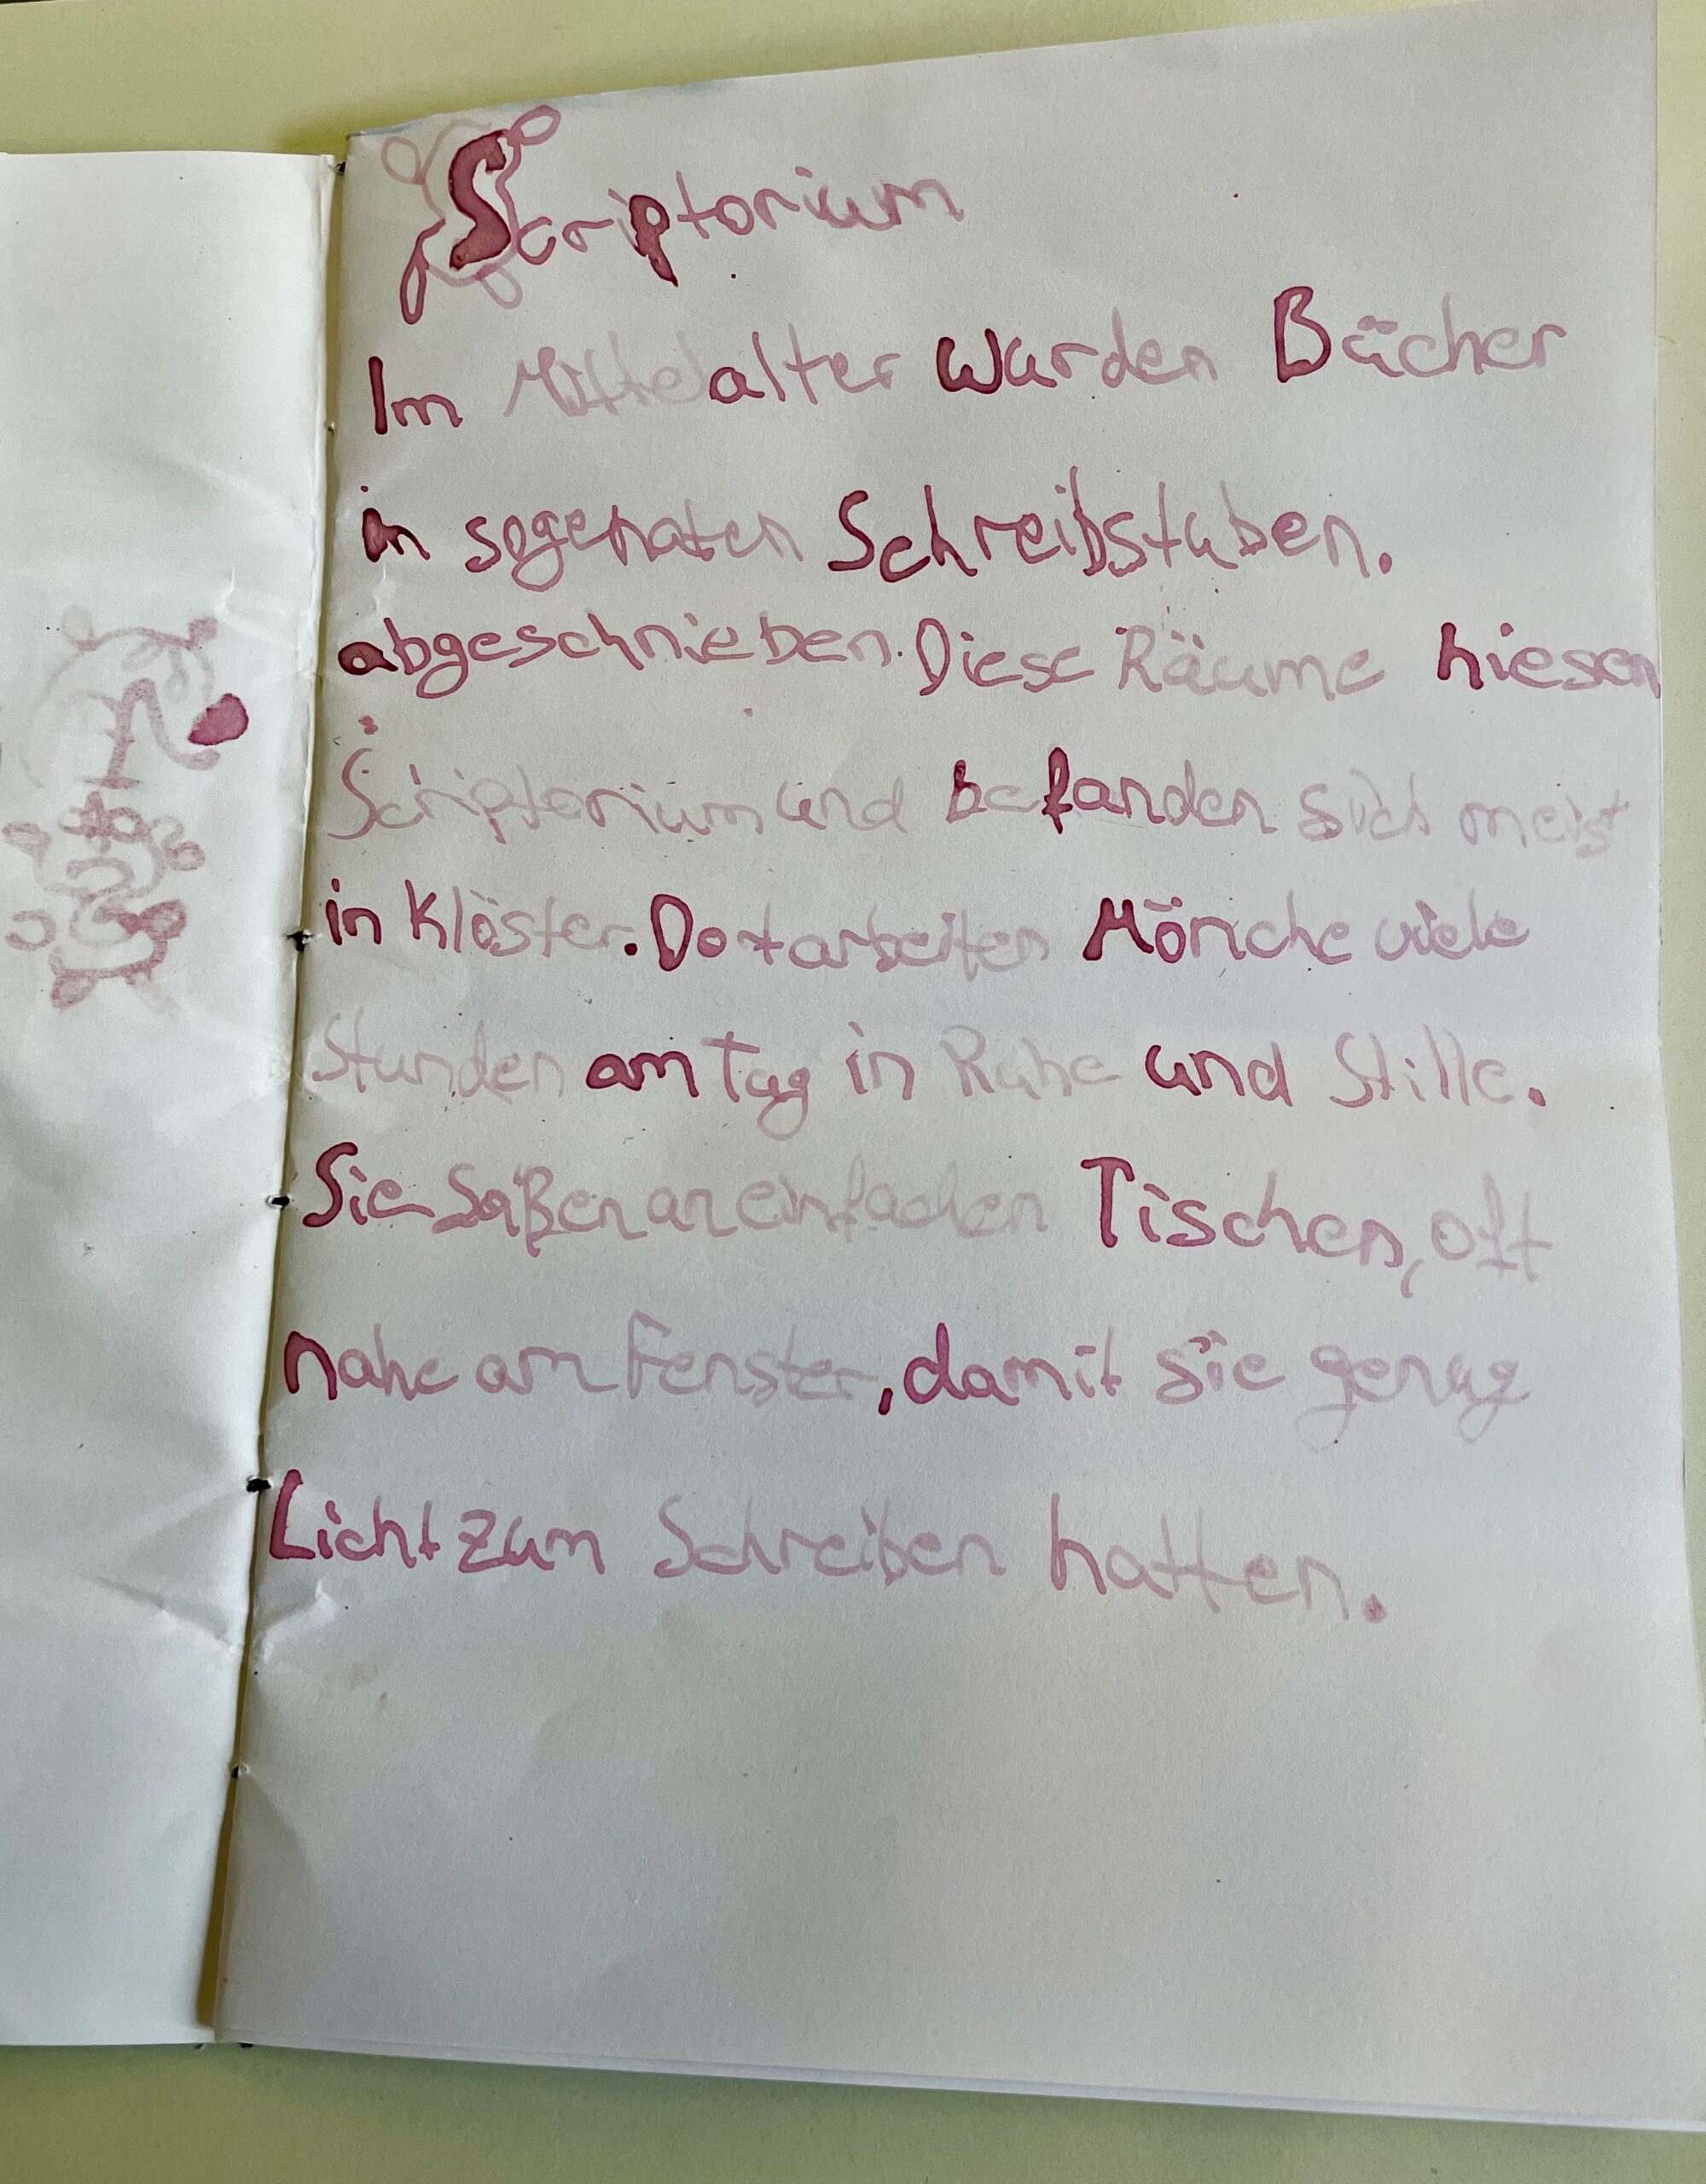 Scriptorium
Im Mittelalter wurden Bücher
in sogenaten Schreibstuben.
abgeschrieben. Diese Räume hiesen
Scriptorium und befanden sich meist
in Klöster. Dort arbeiten Mönche viele
Stunden am Tag in Ruhe und Stille.
Sie saßen an einfachen Tischen, oft
nahe am Fenster, damit sie genug
Licht zum Schreiben hatten.